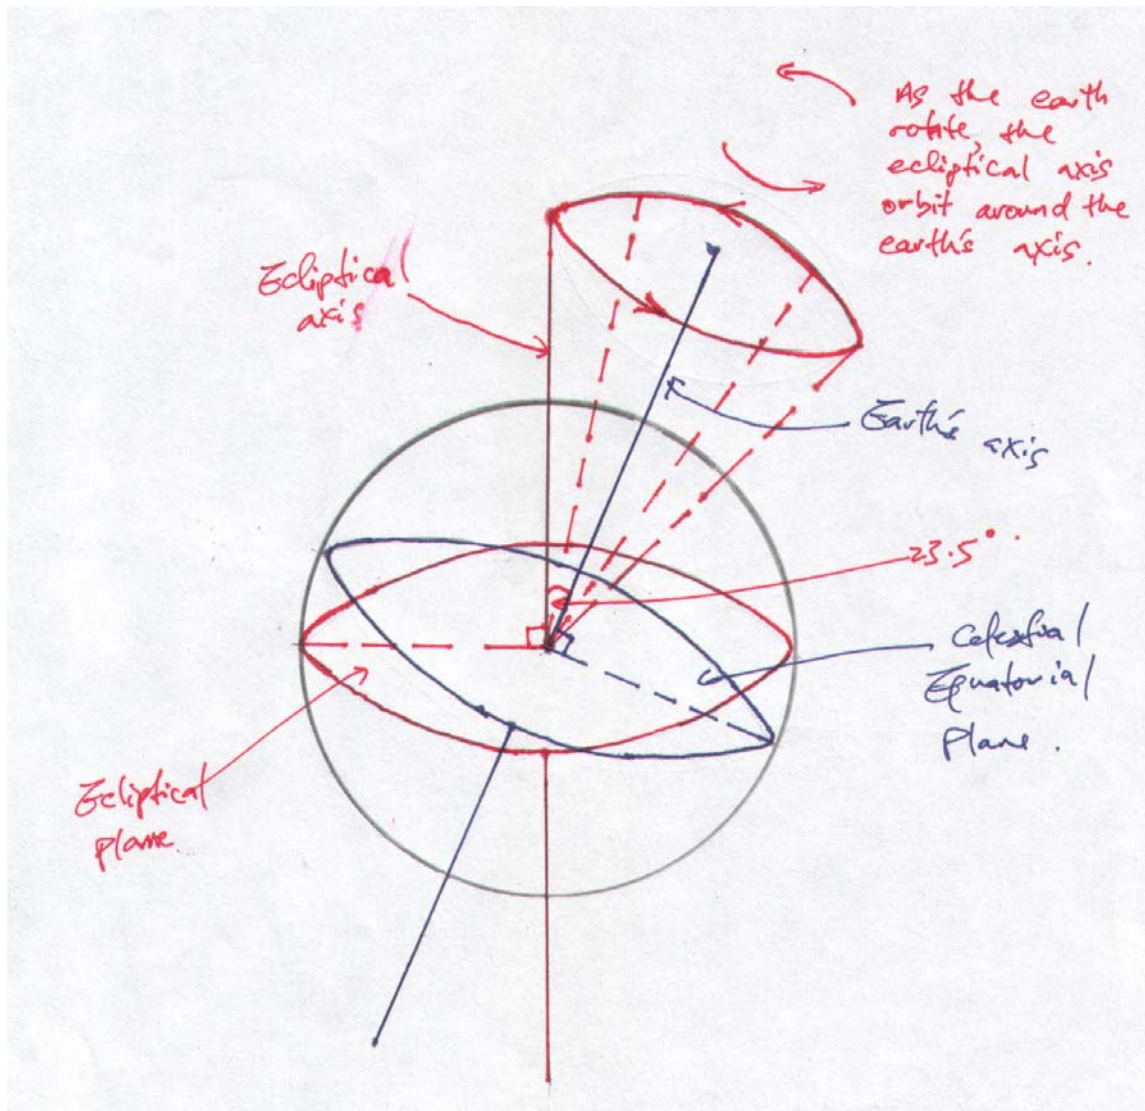 As the earth
rotate, the
ecliptical axis
orbit around the
earth's axis.
Ecliptical
axis
Earth's
axis
23.5°
Celestial
Equatorial
plane.
Ecliptical
plane